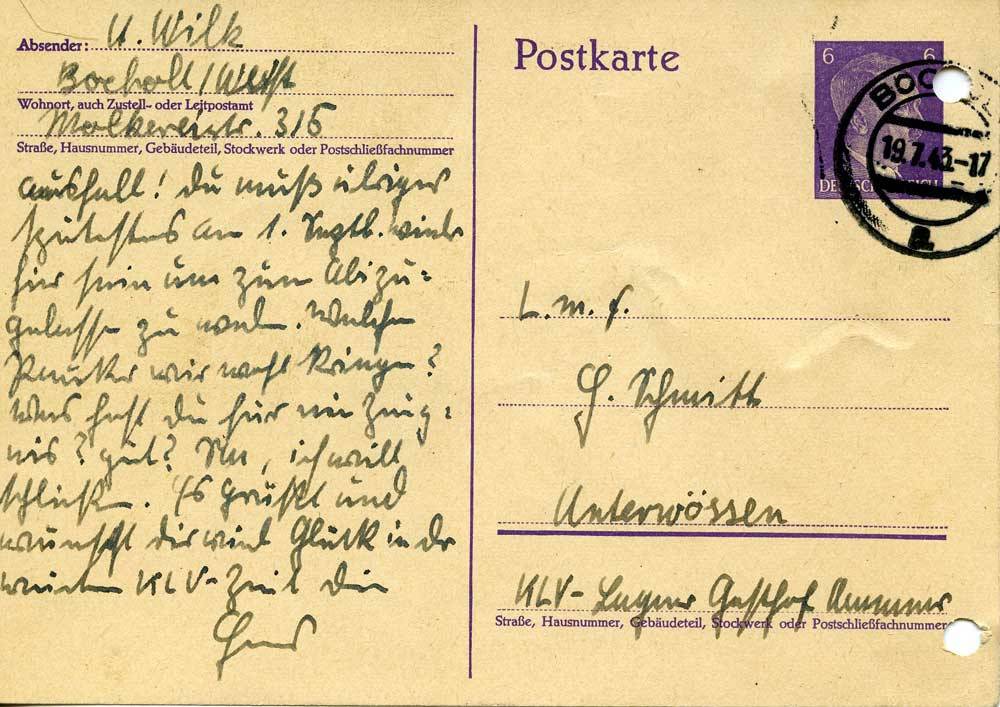 Absender: U. Wilk
Bocholt/Westf
Wohnort, auch Zustell- oder Leitpostamt
Molkereistr. 315
Straße, Hausnummer, Gebäudeteil, Stockwerk oder Postschließfachnummer
ausfall! Du mußt übrigens
spätestens am 1. Septb. wieder
hier sein um zum Abi zu-
gelassen zu werden. Welche
Pauker wir wohl kriegen?
Was hast Du für ein Zeug-
nis? gut? Nun, ich will
schließen. Es grüßt und
wünscht dir viel Glück in der
weiteren KLV-Zeit Dein
Postkarte
6 6
DEUTSCHES REICH
19.7.43.-17
a
L. m. f.
H. Schmitt
Unterwössen
KLV-Lager Gasthof
Straße, Hausnummer, Gebäudeteil, Stockwerk oder Postschließfachnummer